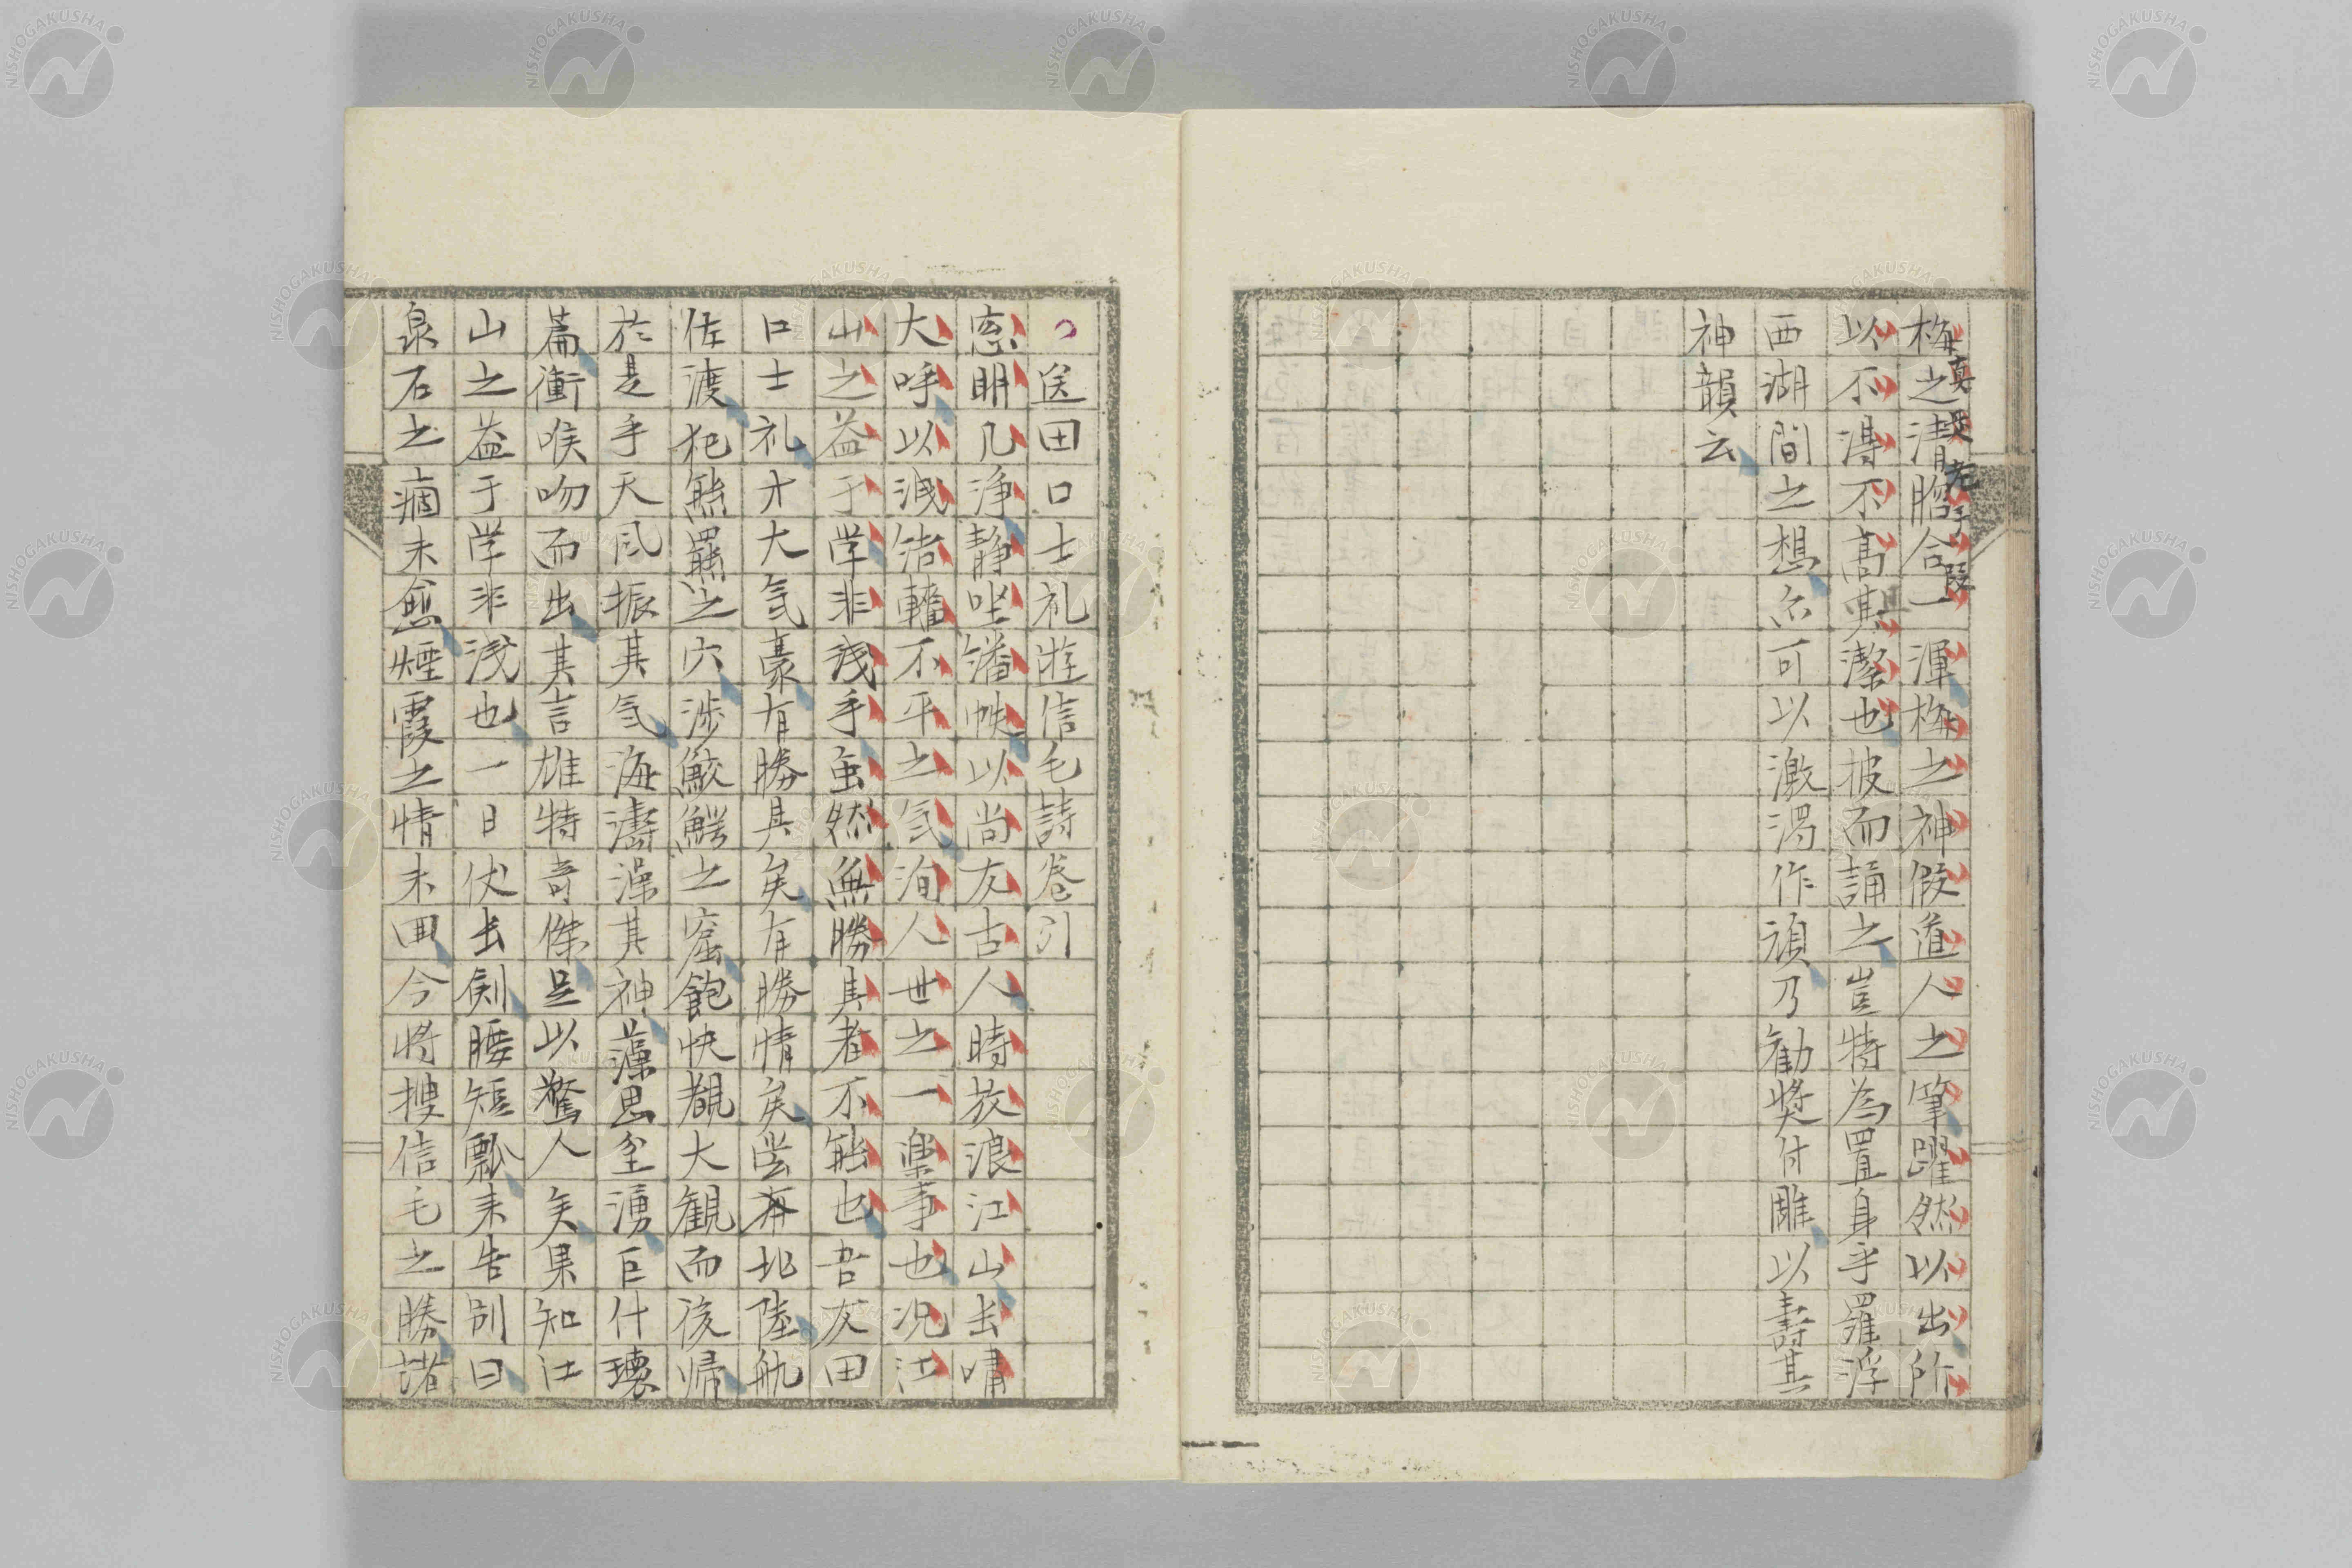 梅之清脗合一渾梅之神假道人之筆躍然以出所
以不得不高其潔也披而誦之豈特為置身乎羅浮
西湖間之想亦可以激渇作頑乃勧奬付雕以壽其
神韻云
送田口士礼遊信毛詩巻引
窓明几浄静坐繙帙以尚友古人時放浪江山長嘯
大呼以洩鬱轖不平之気洵人世之一楽事也况江
山之益于学非浅乎虽然無勝具者不能也吾友田
口士礼才大気豪有勝具矣有勝情矣甞游北陸航
佐渡犯熊羆之穴渉鮫鰐之窟飽快覩大観而後帰
於是乎天風振其気海濤澡其神藻思坌湧巨什瓌
篇衝喉吻而出其言雄特奇傑足以驚人矣果知江
山之益于学非浅也一日伏長剣腰短瓢来告別曰
泉石之痼未愈煙霞之情未回今将捜信毛之勝諸
NISHOGAKUSHA